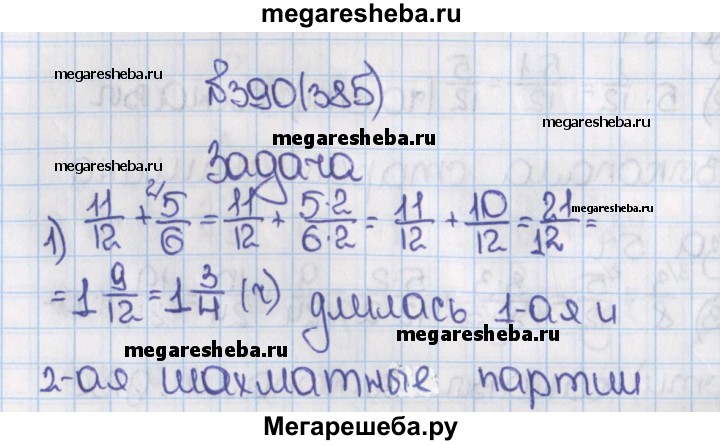 megaresheba.ru
megaresheba.ru
№390(385)
megaresheba.ru
megaresheba.ru
megaresheba.ru
Задача
megaresheba.ru
1) 11/12 + 2/ 5/6 = 11/12 + 5·2/6·2 = 11/12 + 10/12 = 21/12 =
= 1 9/12 = 1 3/4 (ч) длилась 1-ая и
megaresheba.ru
megaresheba.ru
2-ая шахматные партии
Мегарешеба.ру